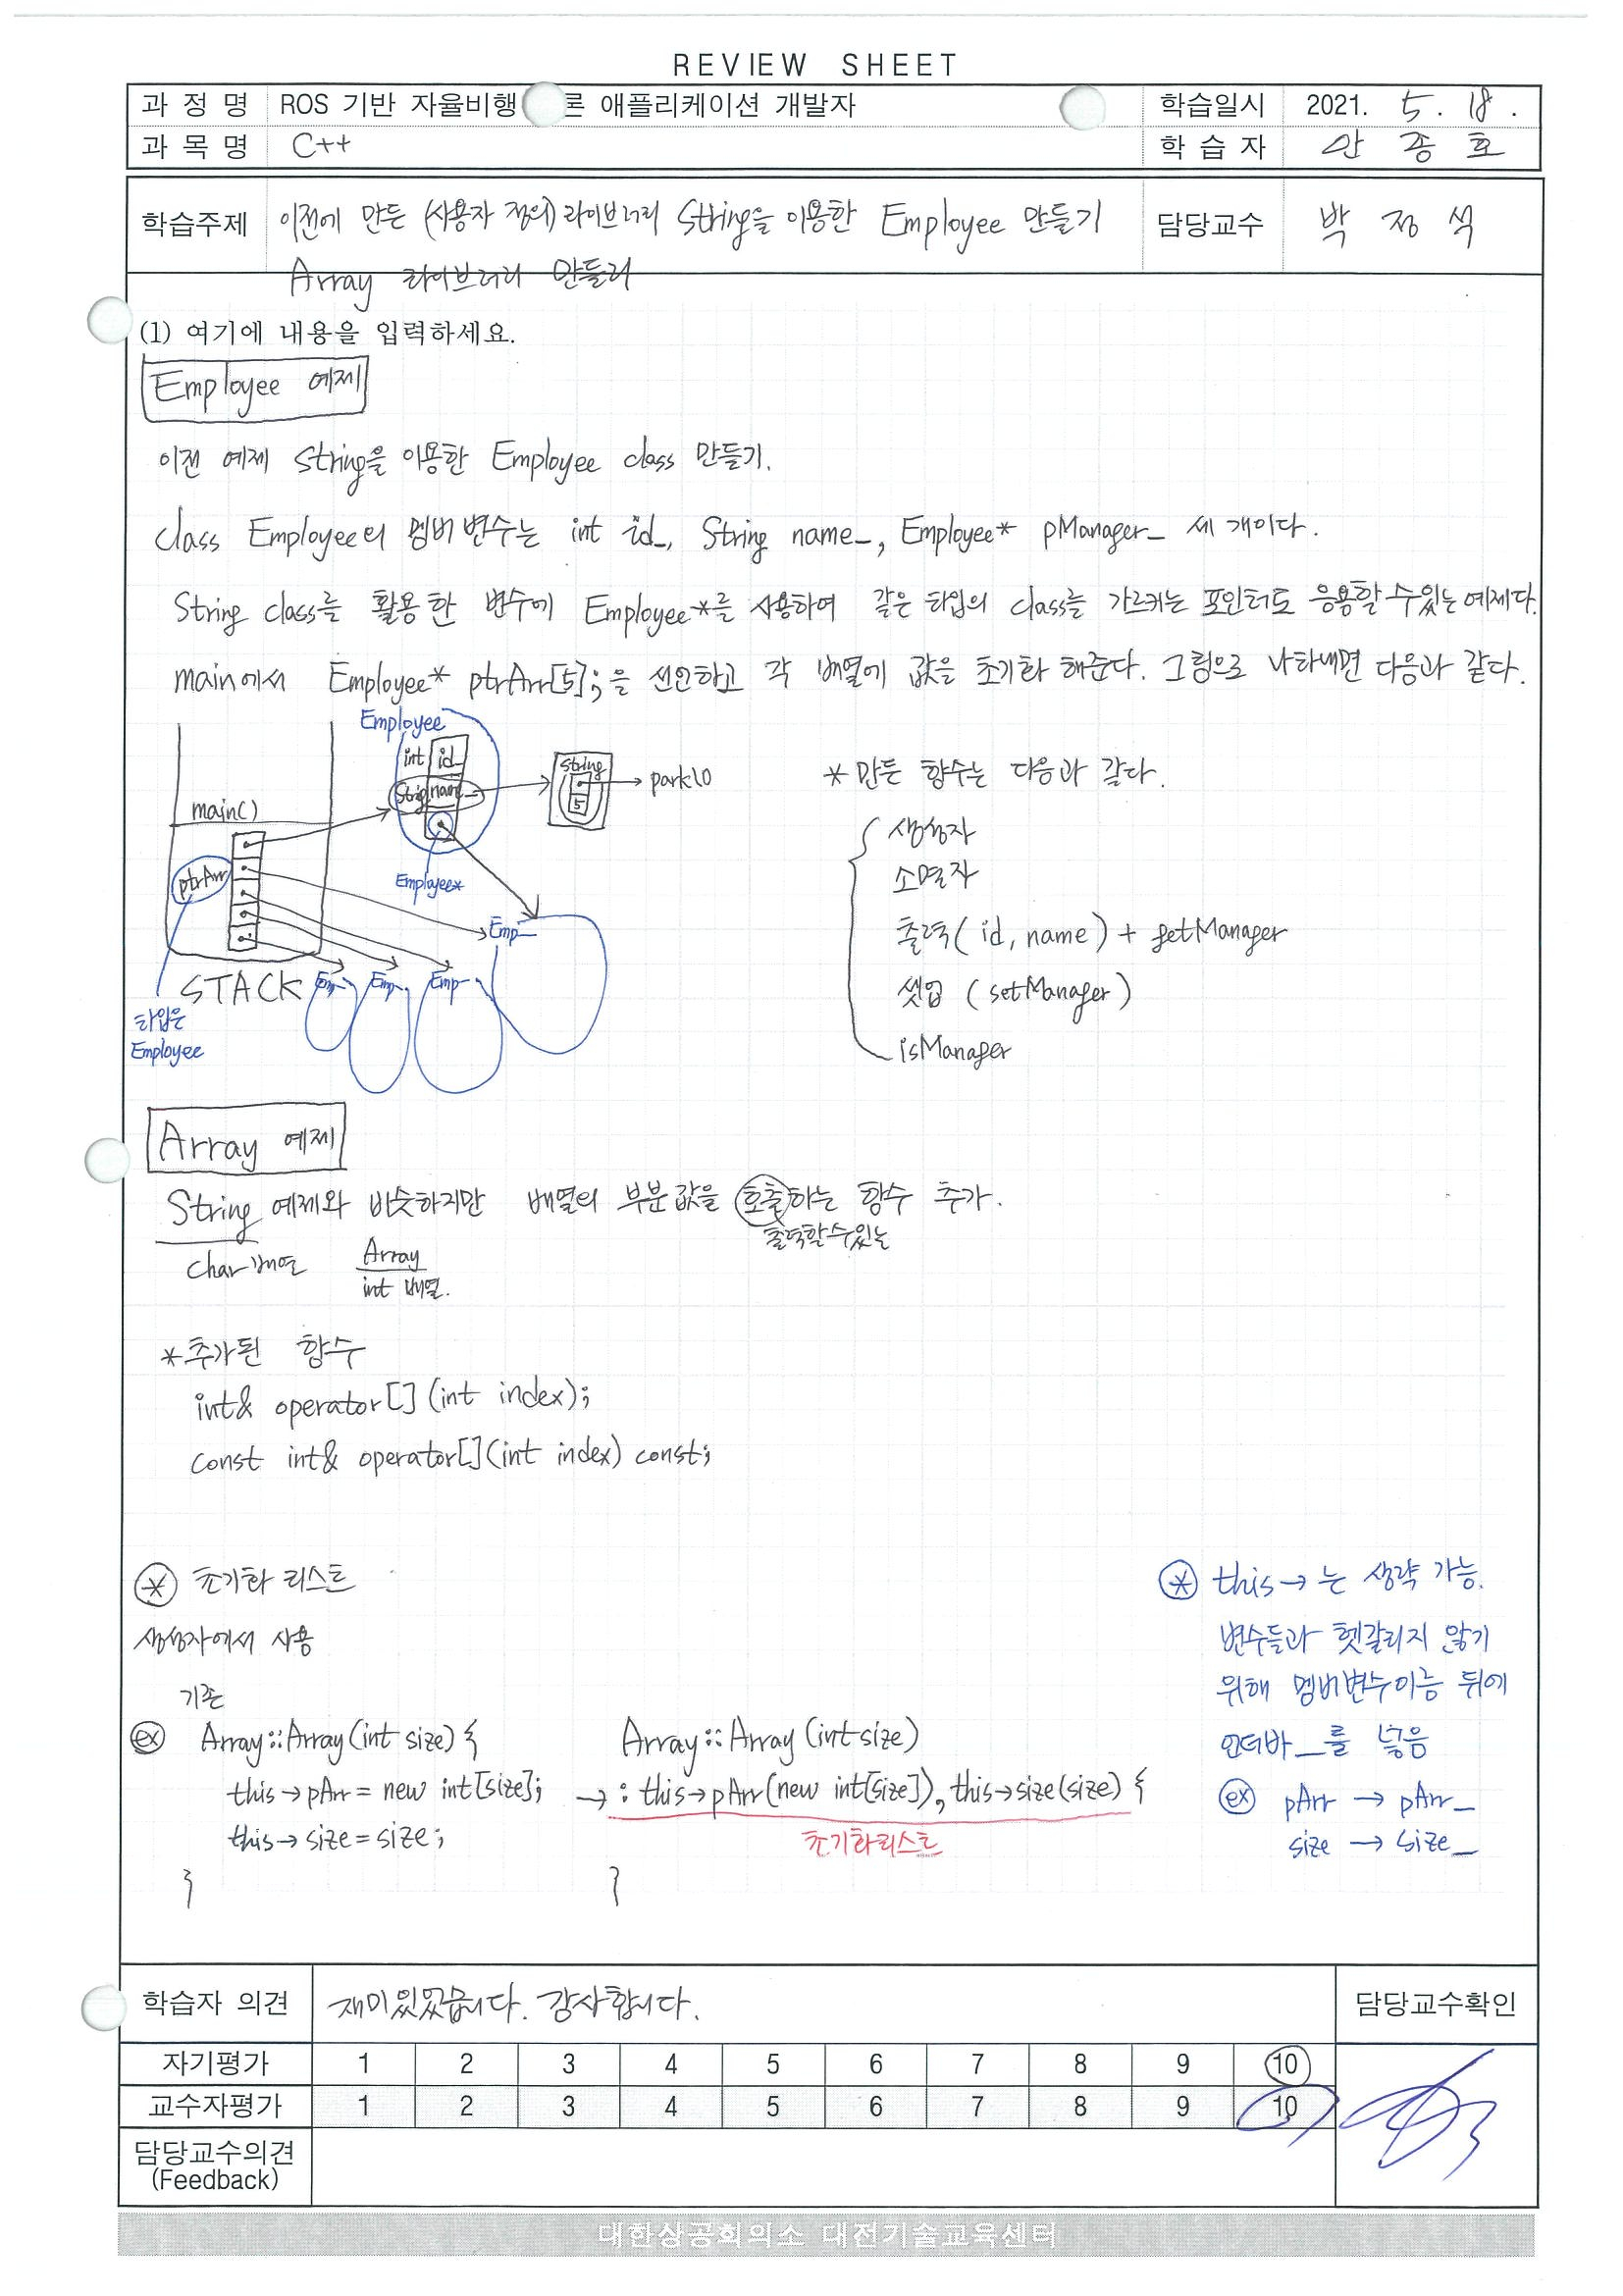 REVIEW SHEET
과 정 명 ROS 기반 자율비행 론 애플리케이션 개발자 학습일시 2021. 5. 18.
과 목 명 C++ 학 습 자 안 종 호
학습주제 이전에 만든 (사용자 정의) 라이브러리 String을 이용한 Employee 만들기 담당교수 박 정 석
Array 라이브러리 만들기
(1) 여기에 내용을 입력하세요.
Employee 예제
이전 예제 String을 이용한 Employee class 만들기.
class Employee의 멤버 변수는 int id_, String name_, Employee* pManager_ 세 개이다.
String class를 활용한 변수에 Employee*를 사용하여 같은 타입의 class를 가르키는 포인터도 응용할 수 있는 예제다.
main에서 Employee* ptrArr[5];을 선언하고 각 배열에 값을 초기화 해준다. 그림으로 나타내면 다음과 같다.
Employee
int id_
String name_
String
5
park10
main()
ptrArr
Employee*
Emp_
STACK
Emp_ Emp_ Emp_
타입은
Employee
* 만든 함수는 다음과 같다.
생성자
소멸자
출력( id, name ) + getManager
셋업 ( setManager )
isManager
Array 예제
String 예제와 비슷하지만 배열의 부분 값을 호출하는 함수 추가.
출력할 수 있는
char 배열 Array
int 배열.
* 추가된 함수
int& operator[] (int index);
const int& operator[](int index) const;
* 초기화 리스트
생성자에서 사용
기존
ex Array::Array(int size) {
this→pArr = new int[size];
this→size = size;
}
Array::Array (int size)
→ : this→pArr(new int[size]), this→size(size) {
초기화리스트
}
* this→ 는 생략 가능.
변수들과 헷갈리지 않기
위해 멤버변수이름 뒤에
언더바 _를 넣음
ex pArr → pArr_
size → size_
학습자 의견 재미있었습니다. 감사합니다. 담당교수확인
자기평가 1 2 3 4 5 6 7 8 9 10
교수자평가 1 2 3 4 5 6 7 8 9 10
담당교수의견
(Feedback)
대한상공회의소 대전기술교육센터